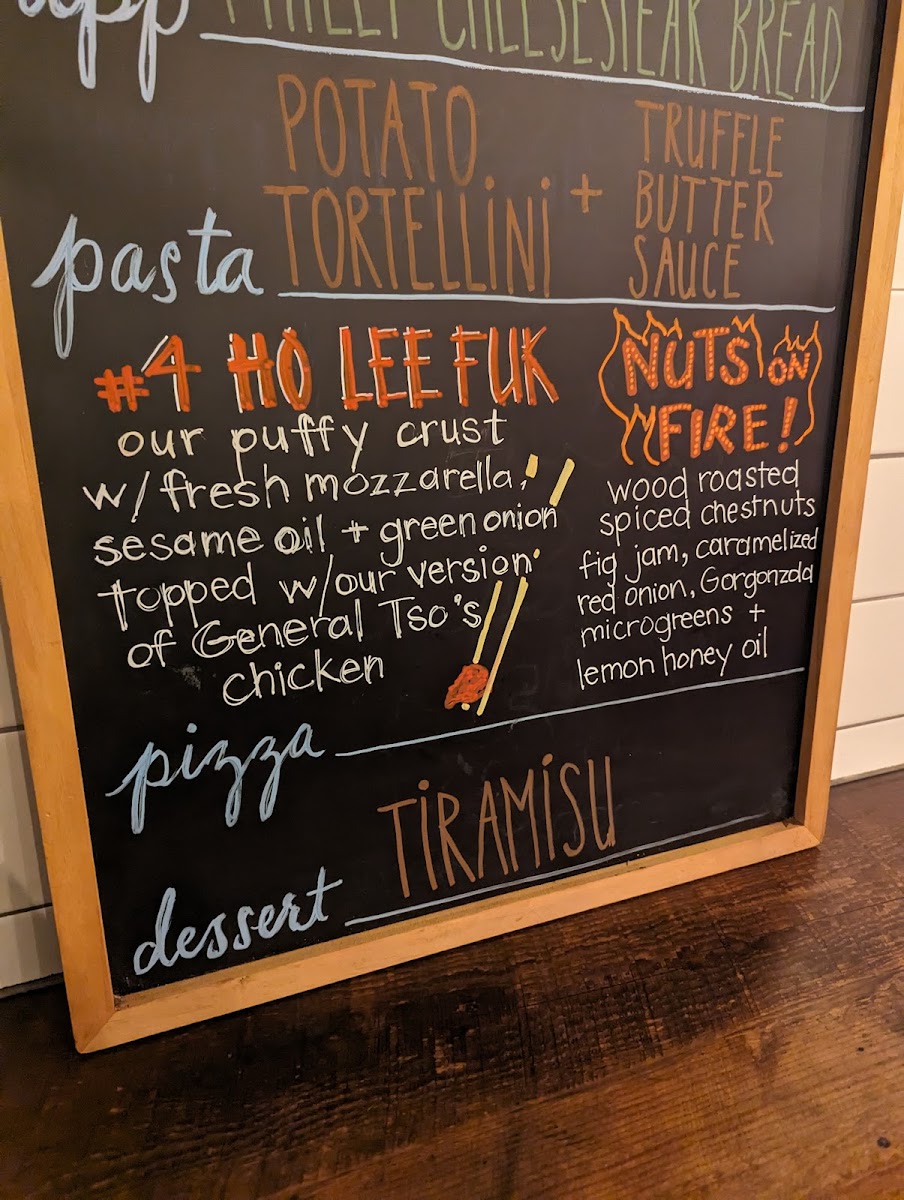 app
PHILLY CHEESESTEAK BREAD
POTATO
TORTELLINI
+
TRUFFLE
BUTTER
SAUCE
pasta
#4 HO LEE FUK
our puffy crust
w/fresh mozzarella,
sesame oil + green onion
topped w/our version
of General Tso's
chicken
NUTS ON
FIRE!
wood roasted
spiced chestnuts
fig jam, caramelized
red onion, Gorgonzola
microgreens +
lemon honey oil
pizza
TIRAMISU
dessert